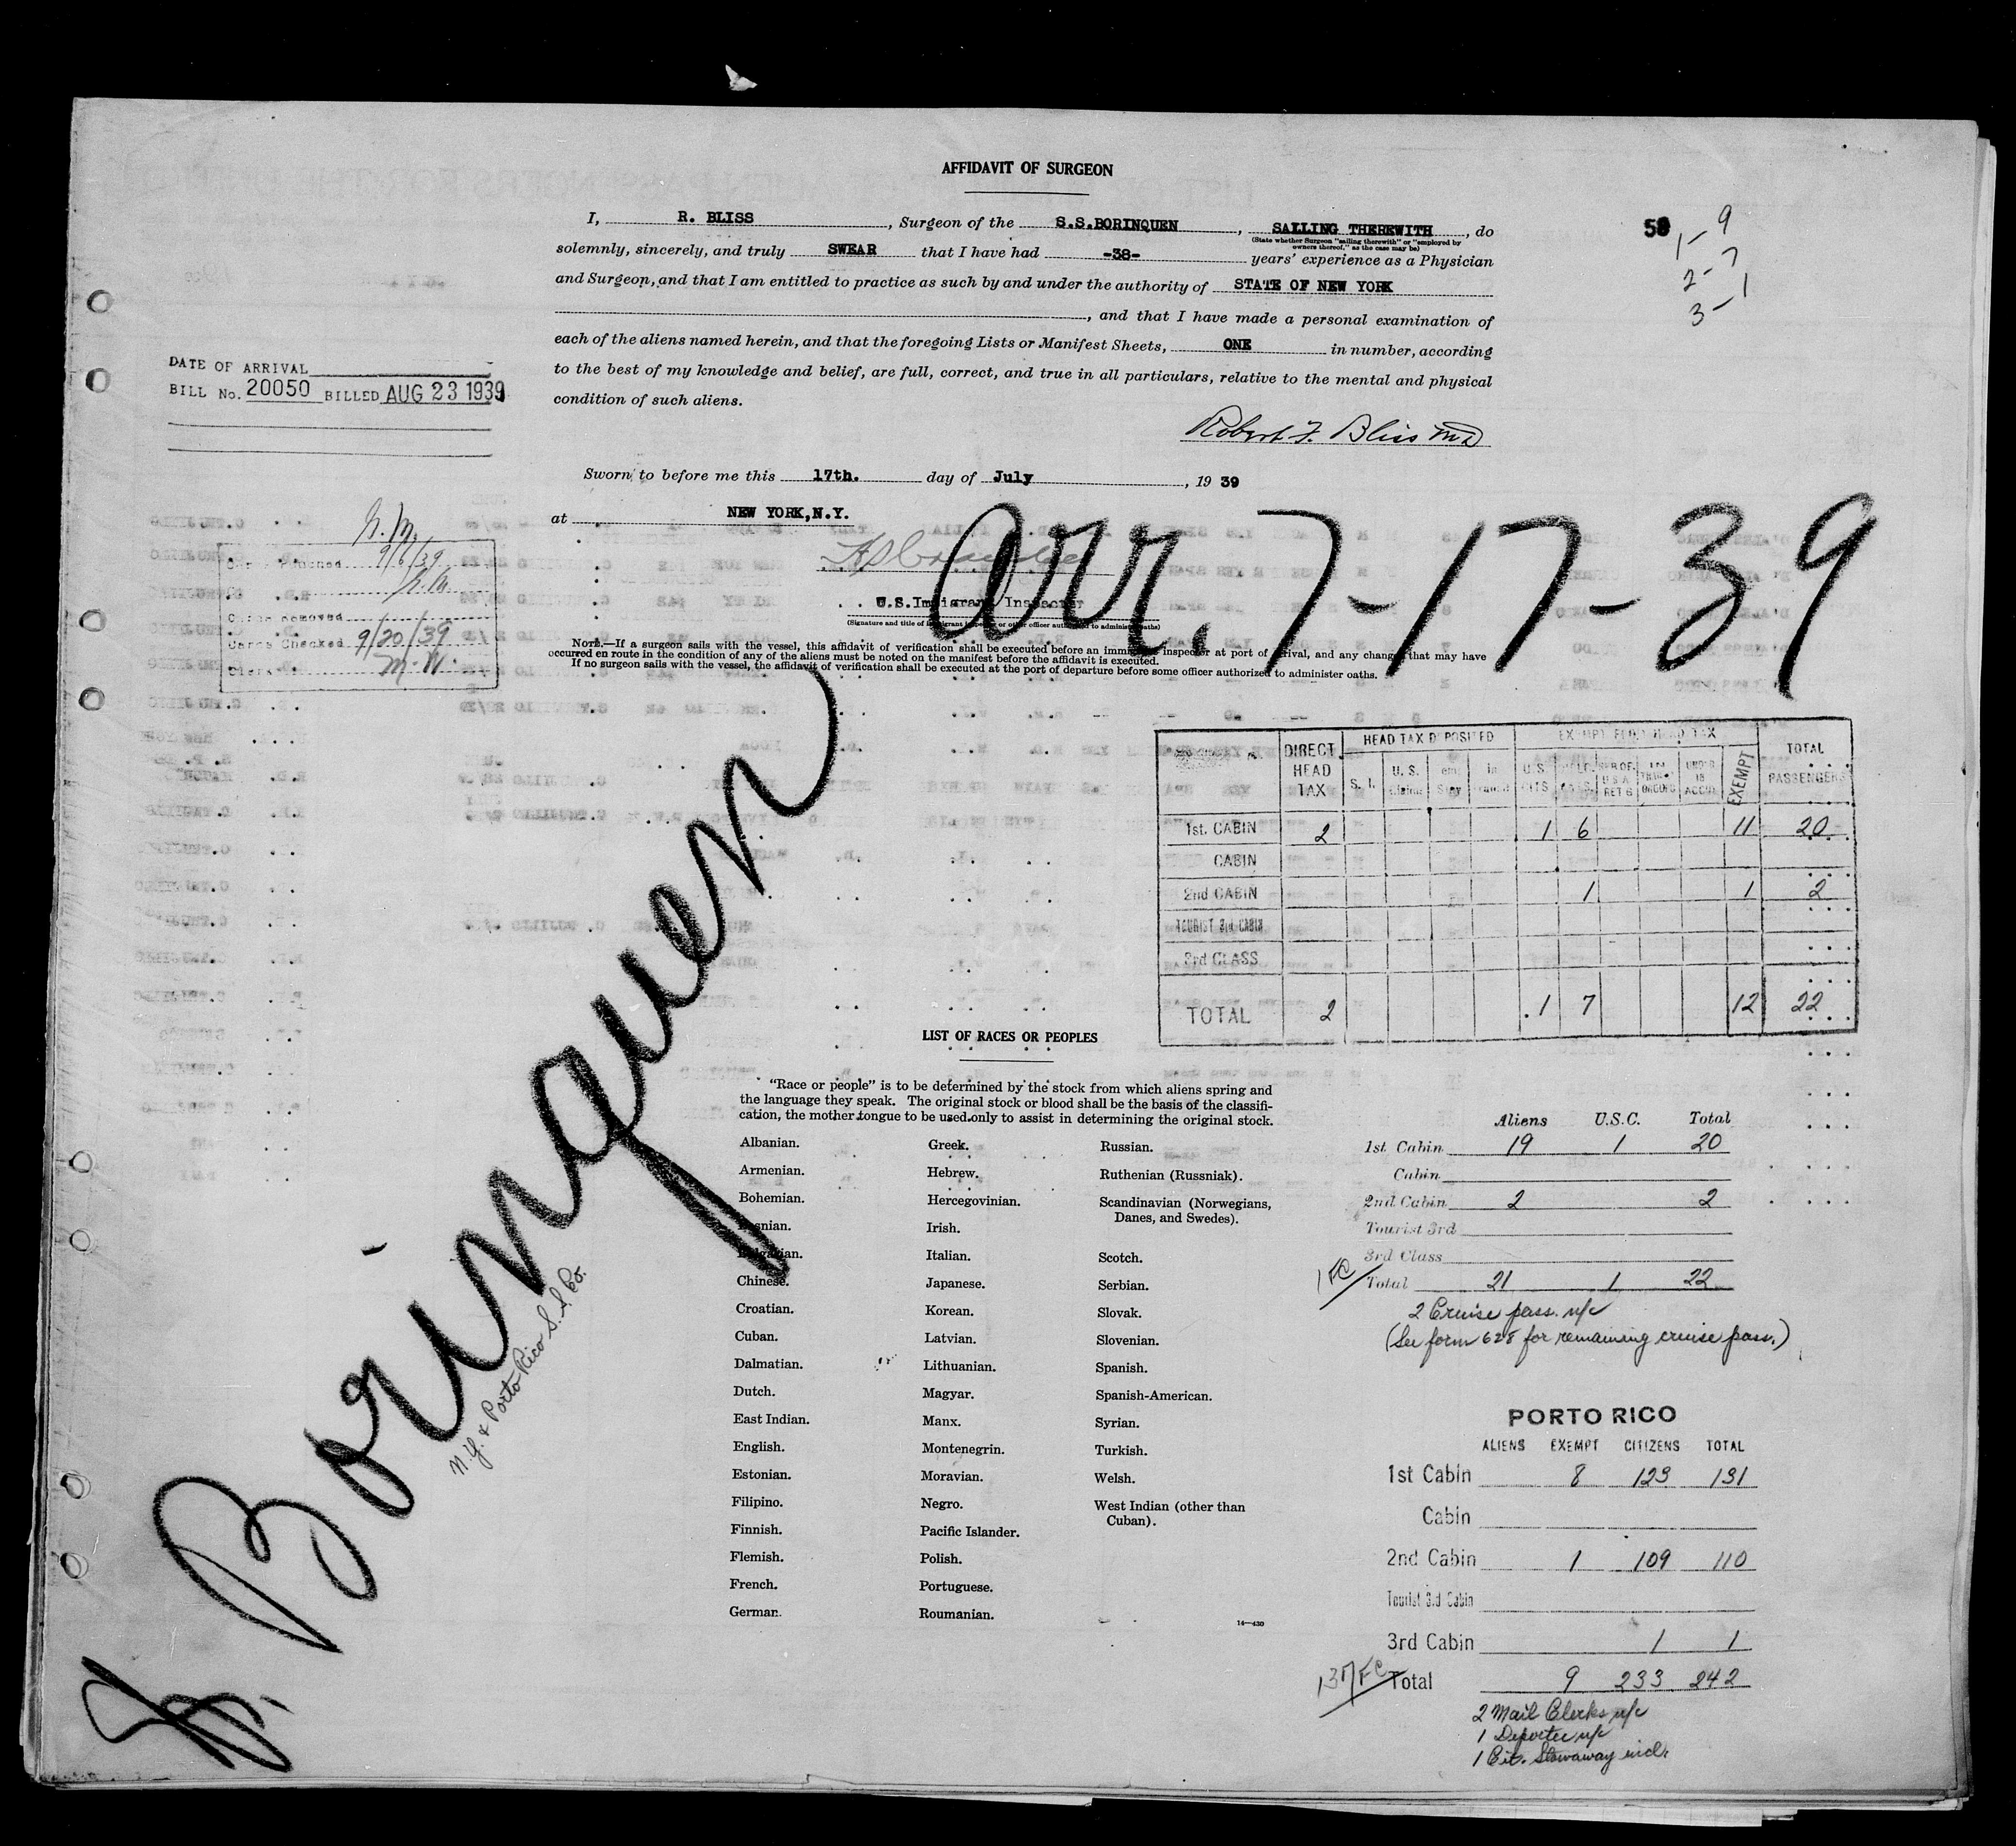 AFFIDAVIT OF SURGEON
I, R. BLISS, Surgeon of the S.S.BORINQUEN, SAILING THEREWITH, do
(State whether Surgeon "sailing therewith" or "employed by
owners thereof," as the case may be)
solemnly, sincerely, and truly SWEAR that I have had -38- years' experience as a Physician
and Surgeon, and that I am entitled to practice as such by and under the authority of STATE OF NEW YORK
, and that I have made a personal examination of
each of the aliens named herein, and that the foregoing Lists or Manifest Sheets, ONE in number, according
to the best of my knowledge and belief, are full, correct, and true in all particulars, relative to the mental and physical
condition of such aliens.
Robert F. Bliss MD
Sworn to before me this 17th. day of July, 19 39
at NEW YORK,N.Y.
U.S.Immigrant Inspector
(Signature and title of immigrant inspector or other officer authorized to administer oaths)
NOTE.—If a surgeon sails with the vessel, this affidavit of verification shall be executed before an immigrant inspector at port of arrival, and any changes that may have
occurred en route in the condition of any of the aliens must be noted on the manifest before the affidavit is executed.
If no surgeon sails with the vessel, the affidavit of verification shall be executed at the port of departure before some officer authorized to administer oaths.
1-9
2-7
3-1
DATE OF ARRIVAL
BILL No. 20050 BILLED AUG 23 1939
9/6/39
Cards Checked 9/20/39
Clerk M.W.
arr. 7-17-39
S.S. Borinquen
N.Y. & Porto Rico S.S. Co.
DIRECT HEAD TAX
HEAD TAX DEPOSITED
EXEMPT FROM HEAD TAX
TOTAL PASSENGERS
S. I. U. S. U.S. CITS EXEMPT
1st. CABIN 2 1 6 11 20
CABIN
2nd CABIN 1 1 2
TOURIST 3rd CABIN
3rd CLASS
TOTAL 2 1 7 12 22
LIST OF RACES OR PEOPLES
"Race or people" is to be determined by the stock from which aliens spring and
the language they speak. The original stock or blood shall be the basis of the classifi-
cation, the mother tongue to be used only to assist in determining the original stock.
Albanian.
Armenian.
Bohemian.
Bosnian.
Bulgarian.
Chinese.
Croatian.
Cuban.
Dalmatian.
Dutch.
East Indian.
English.
Estonian.
Filipino.
Finnish.
Flemish.
French.
German.
Greek.
Hebrew.
Hercegovinian.
Irish.
Italian.
Japanese.
Korean.
Latvian.
Lithuanian.
Magyar.
Manx.
Montenegrin.
Moravian.
Negro.
Pacific Islander.
Polish.
Portuguese.
Roumanian.
Russian.
Ruthenian (Russniak).
Scandinavian (Norwegians,
Danes, and Swedes).
Scotch.
Serbian.
Slovak.
Slovenian.
Spanish.
Spanish-American.
Syrian.
Turkish.
Welsh.
West Indian (other than
Cuban).
14—430
Aliens U.S.C. Total
1st Cabin 19 1 20
Cabin
2nd Cabin 2 2
Tourist 3rd
3rd Class
1 FC Total 21 1 22
2 Cruise pass. n/c
(See form 628 for remaining cruise pass.)
PORTO RICO
ALIENS EXEMPT CITIZENS TOTAL
1st Cabin 8 123 131
Cabin
2nd Cabin 1 109 110
Tourist 3rd Cabin
3rd Cabin 1 1
137 FC Total 9 233 242
2 Mail Clerks n/c
1 Deportee n/c
1 Cit. Stowaway incl.